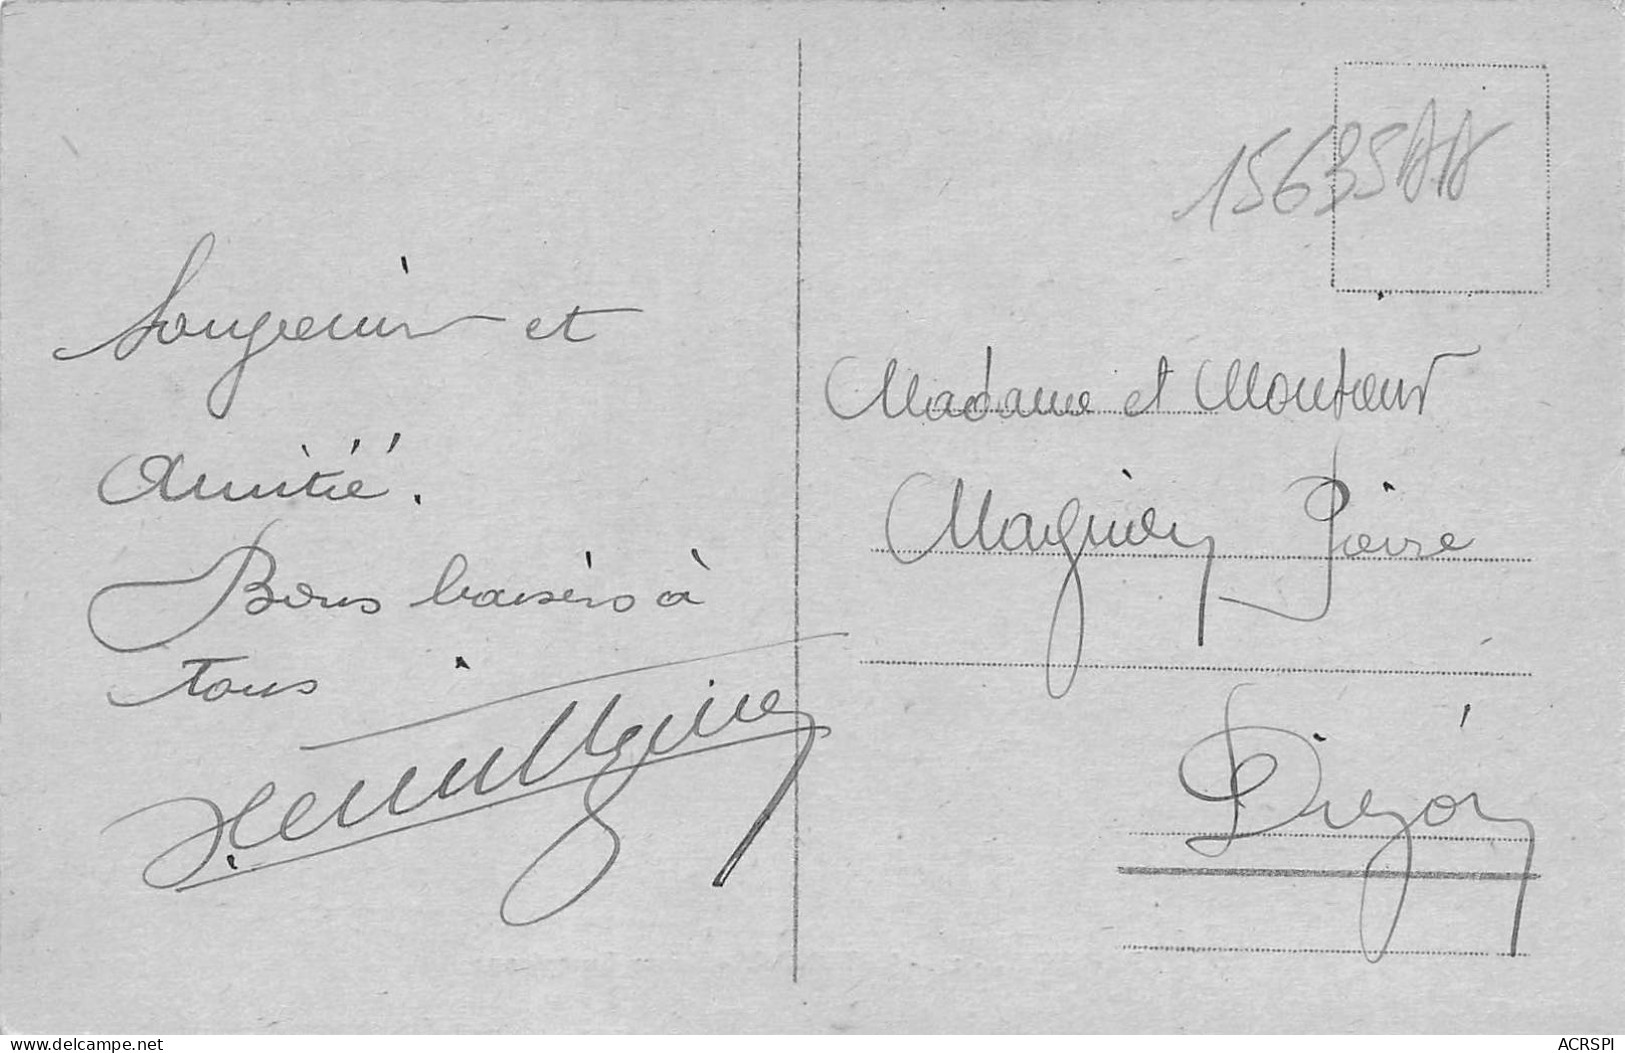 Souvenir et
Amitié.
Bons baisers à
tous
15635AA
Madame et Monsieur
Magnien Pierre
Dijon
www.delcampe.net
ACRSPI